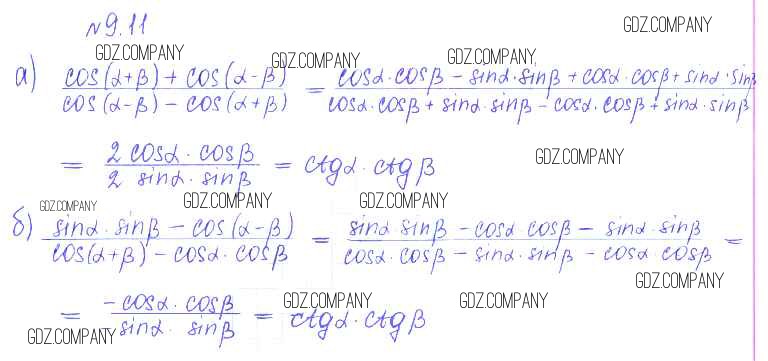 №9.11
GDZ.COMPANY
GDZ.COMPANY GDZ.COMPANY GDZ.COMPANY
а) cos(α+β) + cos(α-β) / cos(α-β) - cos(α+β) = cosα·cosβ - sinα·sinβ + cosα·cosβ + sinα·sinβ / cosα·cosβ + sinα·sinβ - cosα·cosβ + sinα·sinβ
= 2 cosα·cosβ / 2 sinα·sinβ = ctgα·ctgβ GDZ.COMPANY
GDZ.COMPANY GDZ.COMPANY GDZ.COMPANY
б) sinα·sinβ - cos(α-β) / cos(α+β) - cosα·cosβ = sinα·sinβ - cosα cosβ - sinα·sinβ / cosα·cosβ - sinα·sinβ - cosα·cosβ =
GDZ.COMPANY
= -cosα·cosβ / sinα· sinβ = ctgα·ctgβ
GDZ.COMPANY GDZ.COMPANY
GDZ.COMPANY